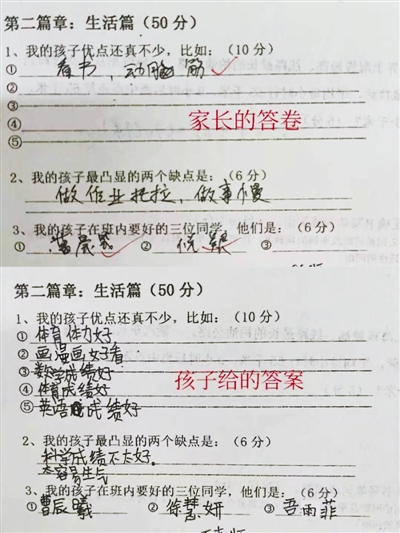 第二篇章：生活篇（50 分）
1、我的孩子优点还真不少，比如：（10 分）
① 看书，动脑筋
②
③
④
⑤
家长的答卷
2、我的孩子最凸显的两个缺点是：（6 分）
做作业拖拉，做事慢
3、我的孩子在班内要好的三位同学，他们是：（6 分）
① 曹晨 ② ③
第二篇章：生活篇（50 分）
1、我的孩子优点还真不少，比如：（10 分）
①体育体力好
②画漫画好看
③数学成绩好
④体育成绩好
⑤英语成绩好
孩子给的答案
2、我的孩子最凸显的两个缺点是：（6 分）
科学成绩不太好。
太容易生气
3、我的孩子在班内要好的三位同学，他们是：（6 分）
①曹辰曦 ②徐慧妍 ③吾雨菲